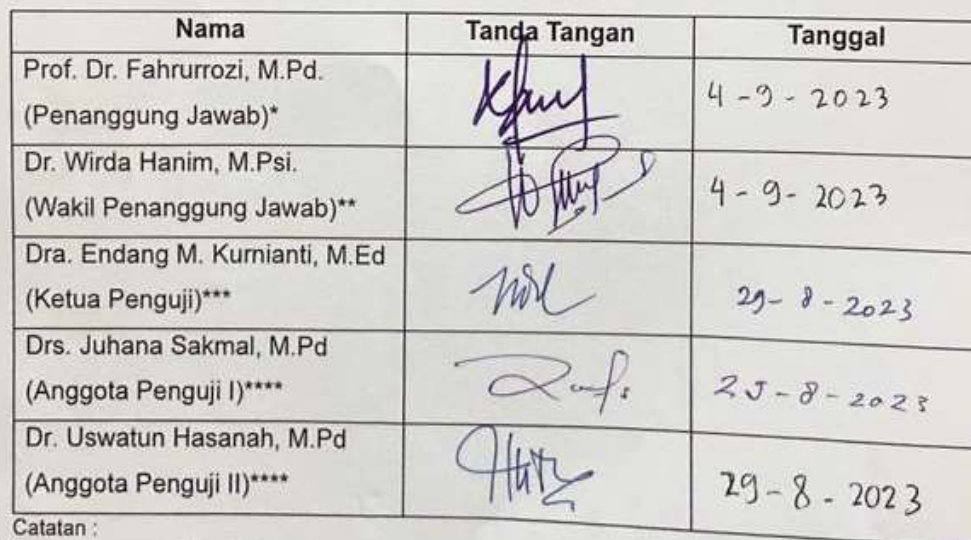 Nama Tanda Tangan Tanggal
Prof. Dr. Fahrurrozi, M.Pd.
(Penanggung Jawab)*
4 - 9 - 2023
Dr. Wirda Hanim, M.Psi.
(Wakil Penanggung Jawab)**
4 - 9 - 2023
Dra. Endang M. Kurnianti, M.Ed
(Ketua Penguji)***
29 - 8 - 2023
Drs. Juhana Sakmal, M.Pd
(Anggota Penguji I)****
- 8 - 2023
Dr. Uswatun Hasanah, M.Pd
(Anggota Penguji II)****
29 - 8 - 2023
Catatan :